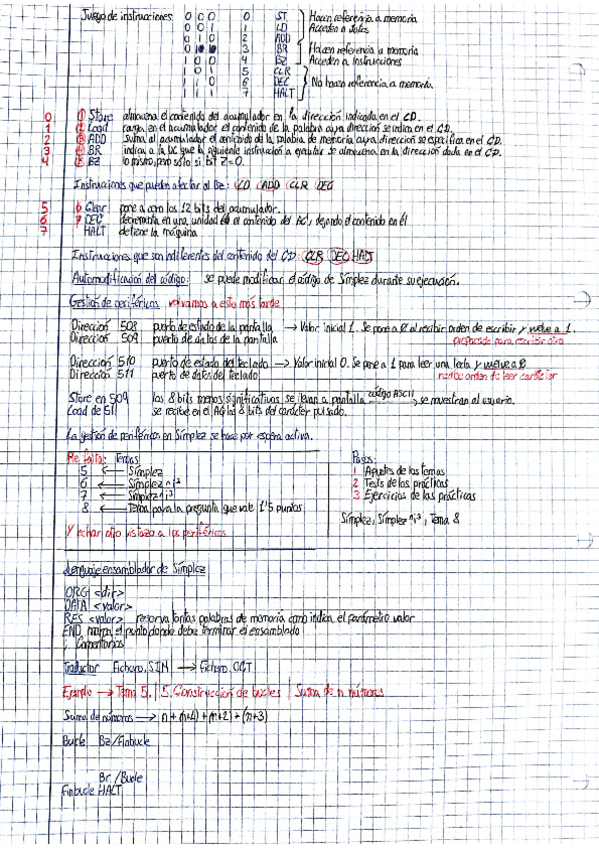 Juego de instrucciones: 0 0 0 0 ST Hacen referencia a memoria
0 0 1 1 LD Acceden a datos
0 1 0 2 ADD
0 1 1 3 BR Hacen referencia a memoria
1 0 0 4 BZ Acceden a Instrucciones
1 0 1 5 CLR
1 1 0 6 DEC No hacen referencia a memoria
1 1 1 7 HALT
0 1 Store almacena el contenido del acumulador en la dirección indicada en el CD.
1 2 Load carga en el acumulador el contenido de la palabra cuya dirección se indica en el CD.
2 3 ADD suma al acumulador el contenido de la palabra de memoria cuya dirección se especifica en el CD.
3 4 BR indica a la UC que la siguiente instrucción a ejecutar se almacena en la dirección dada en el CD.
4 5 BZ lo mismo, pero solo si bit Z=0.
Instrucciones que pueden afectar al Bz: LD ADD CLR DEC
5 6 Clear pone a cero los 12 bits del acumulador.
6 7 DEC decrementa en una unidad el contenido del AC, dejando el contenido en él
7 HALT detiene la máquina
Instrucciones que son indiferentes del contenido del CD: CLR DEC HALT
Automodificación del código: se puede modificar el código de Símplez durante su ejecución.
Gestión de periféricos volvamos a esto más tarde
Dirección 508 puerto de estado de la pantalla → Valor inicial 1. Se pone a 0 al recibir orden de escribir y vuelve a 1.
Dirección 509 puerto de datos de la pantalla preparado para escribir otro
Dirección 510 puerto de estado del teclado → Valor inicial 0. Se pone a 1 para leer una tecla y vuelve a 0
Dirección 511 puerto de datos del teclado recibo orden de leer carácter
Store en 509 los 8 bits menos significativos se llevan a pantalla código ASCII → se muestran al usuario.
Load de 511 se recibe en el AC los 8 bits del carácter pulsado.
La gestión de periféricos en Símplez se hace por espera activa.
Me falta: Temas Pasos:
5 ← Símplez 1 Apuntes de los temas
6 ← Símplez n i³ 2 Tests de las prácticas
7 ← Símplez n i³ 3 Ejercicios de las prácticas
8 ← Tema para la pregunta que vale 1'5 puntos
Símplez, Símplez n i³, Tema 8
Y echar otro vistazo a los periféricos
Lenguaje ensamblador de Símplez
ORG <dir>
DATA <valor>
RES <valor> reserva tantas palabras de memoria como indica el parámetro valor
END marca el punto donde debe terminar el ensamblado
; Comentarios
Traductor Fichero.SIM → Fichero.OCT
Ejemplo → Tema 5. | 5. Construcción de bucles | Suma de n números
Suma de números → n+(n+1)+(n+2)+(n+3)
Bucle Bz /Finbucle
Br /Bucle
Finbucle HALT